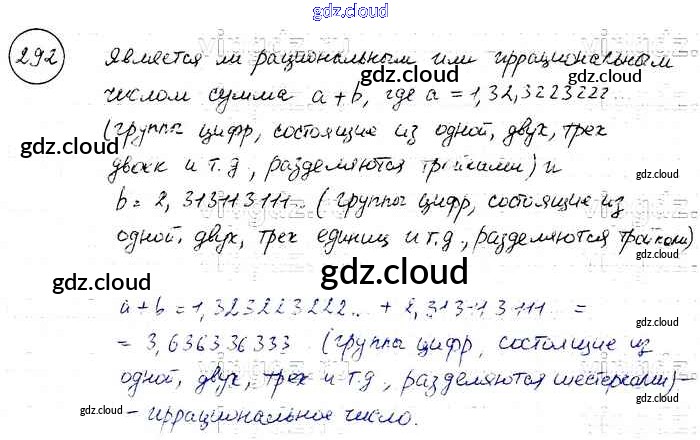 gdz.cloud
292 Является ли рациональным или иррациональным
числом сумма a+b, где a = 1,32,3223222...
(группы цифр, состоящие из одной, двух, трех
двоек и т.д, разделяются тройками) и
b = 2,313113111... (группы цифр, состоящие из
одной, двух, трех единиц и т.д, разделяются тройками)
a+b = 1,323223222... + 2,313113111... =
= 3,636336333 (группы цифр, состоящие из
одной, двух, трех и т.д, разделяются шестерками) –
- иррациональное число.
gdz.cloud
gdz.cloud
gdz.cloud
gdz.cloud
gdz.cloud
gdz.cloud
gdz.cloud
gdz.cloud
gdz.cloud
gdz.cloud